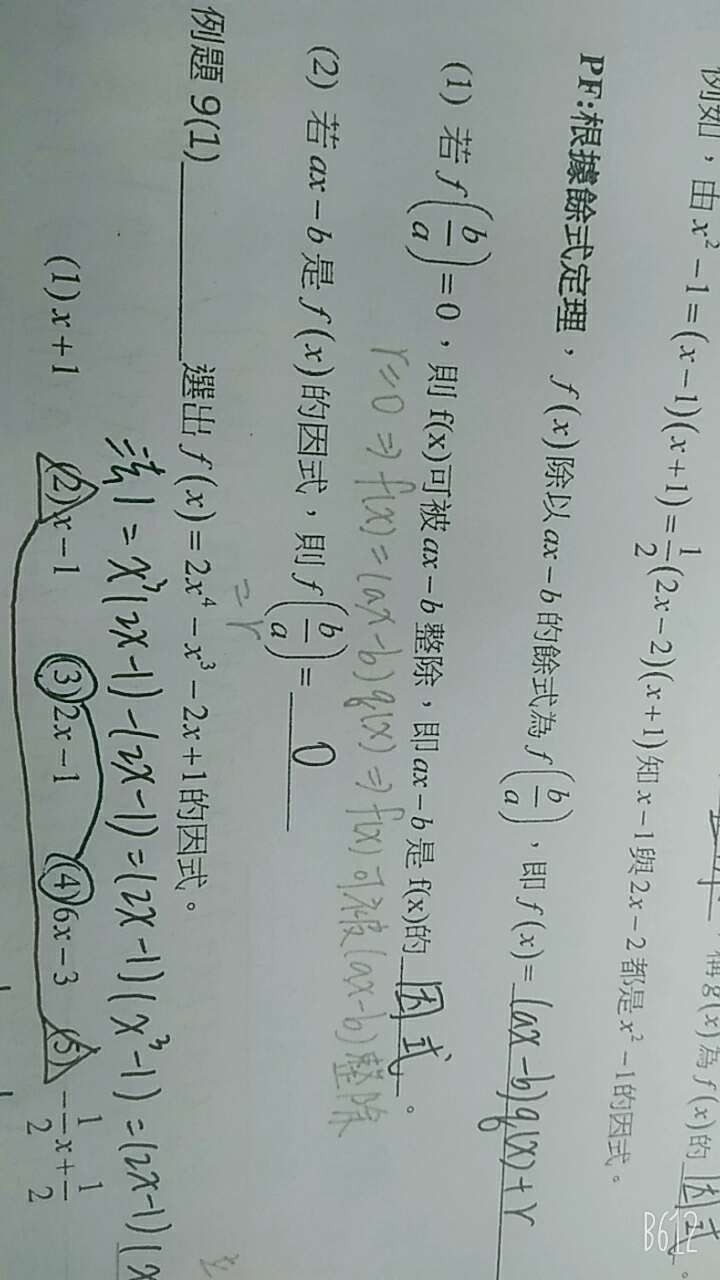 例如，由 x² − 1 = (x − 1)(x + 1) = 1/2 (2x − 2)(x + 1) 知 x − 1 與 2x − 2 都是 x² − 1 的因式。
稱 g(x) 為 f(x) 的 因式。
PF:根據餘式定理，f(x) 除以 ax − b 的餘式為 f(b/a)，即 f(x) = (ax−b)q(x)+r
(1) 若 f(b/a) = 0，則 f(x)可被 ax − b 整除，即 ax − b 是 f(x)的 因式。
r=0 ⇒ f(x)=(ax−b)q(x) ⇒ f(x)可被(ax−b)整除
(2) 若 ax − b 是 f(x) 的因式，則 f(b/a) = 0
= r
例題 9(1) ________ 選出 f(x) = 2x⁴ − x³ − 2x + 1 的因式。
法1 = x³(2x−1)−(2x−1)=(2x−1)(x³−1)=(2x−1)(x
(1) x + 1 (2) x − 1 (3) 2x − 1 (4) 6x − 3 (5) −1/2 x + 1/2
B612